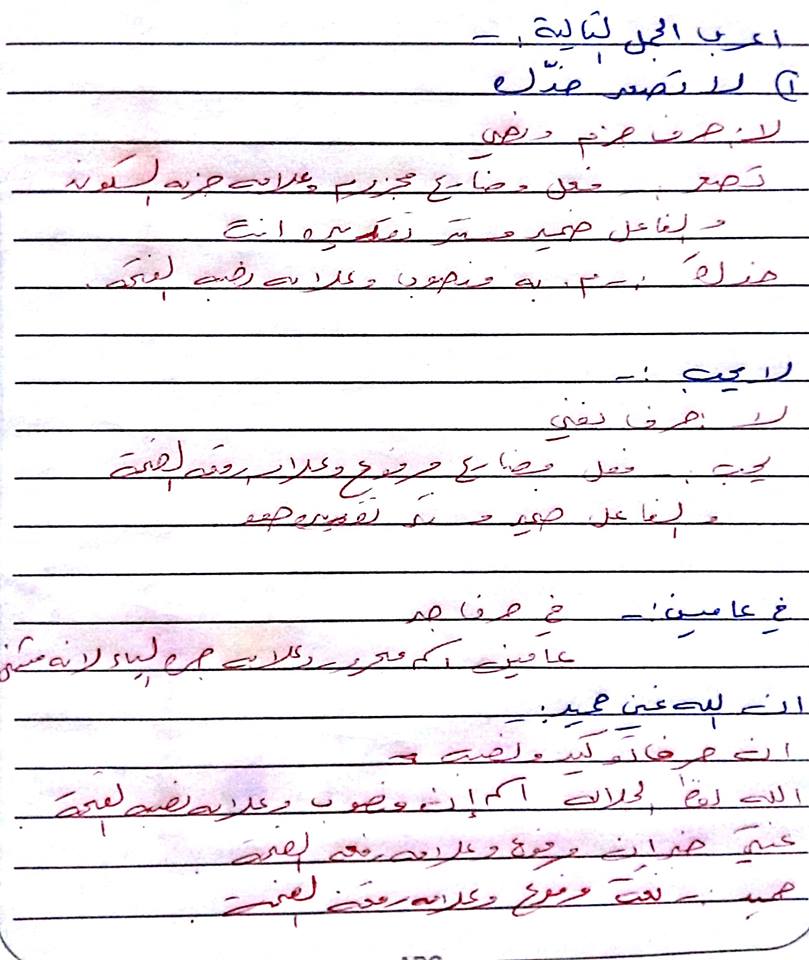 اعرب الجمل التالية :-
١) لا تصعر خدّك
لا : حرف جزم ونهي
تصعر : فعل مضارع مجزوم وعلامه جزمه السكون
والفاعل ضمير مستتر تقديره انت
خدكَ :- م. به منصوب وعلامه نصبه الفتحة .
لا يحب :-
لا : حرف نفي
يحب : فعل مضارع مرفوع وعلامه رفعه الضمة
والفاعل ضمير مستتر تقديره هو
في عامين :- في حرف جر
عامين اسم مجرور وعلامه جره الياء لانه مثنى
ان الله غني حميد :-
ان حرف توكيد ونصب
الله لفظ الجلاله اسم إن منصوب وعلامه نصبه الفتحة
غني خبر إن مرفوع وعلامه رفعه الضمة .
حميد :- نعت مرفوع وعلامه رفعه الضمة .